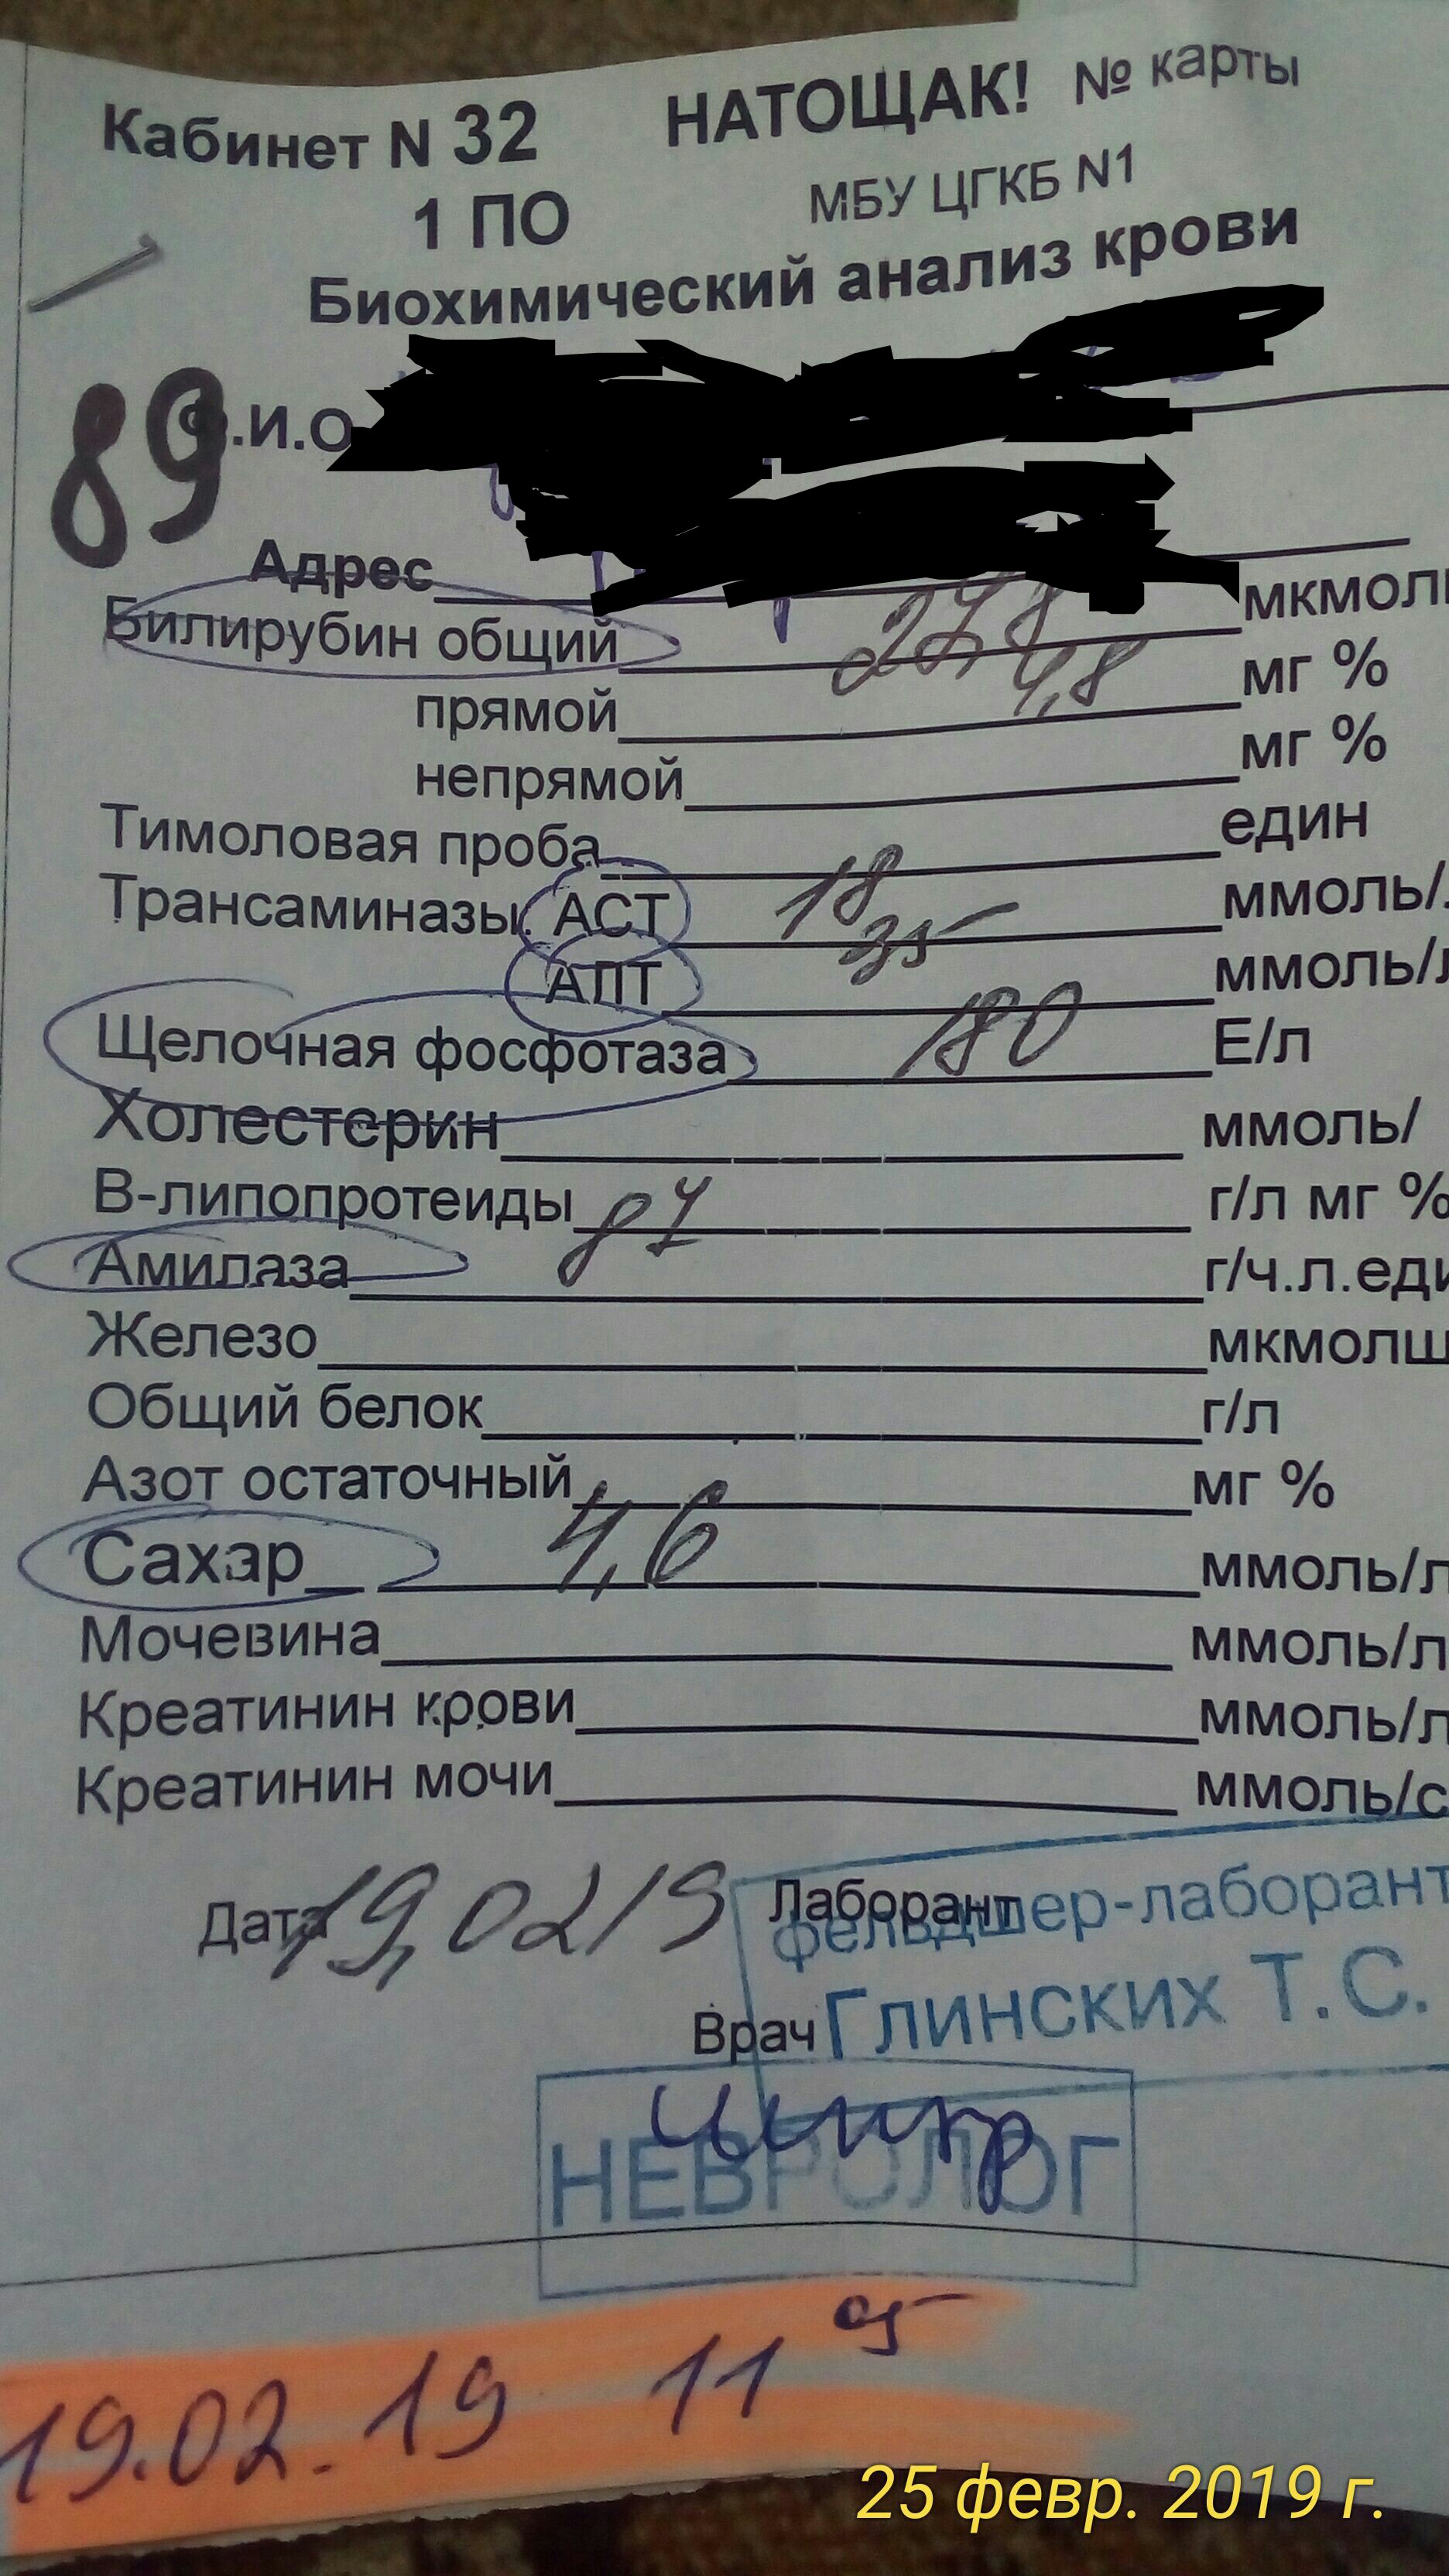 Кабинет N 32 НАТОЩАК! № карты
1 ПО МБУ ЦГКБ N1
Биохимический анализ крови
89 .И.О
Адрес
Билирубин общий 27,8 мкмоль
прямой 4,8 мг %
непрямой мг %
Тимоловая проба един
Трансаминазы. АСТ 18 ммоль/л
АЛТ 35 ммоль/л
Щелочная фосфотаза 180 Е/л
Холестерин ммоль/
В-липопротеиды г/л мг %
Амилаза 87 г/ч.л.еди
Железо мкмолш
Общий белок г/л
Азот остаточный мг %
Сахар 4,6 ммоль/л
Мочевина ммоль/л
Креатинин крови ммоль/л
Креатинин мочи ммоль/с
Дата 19,02/9 Лаборант
фельдшер-лаборант
Врач Глинских Т.С.
НЕВРОЛОГ
19.02.19 11 05
25 февр. 2019 г.